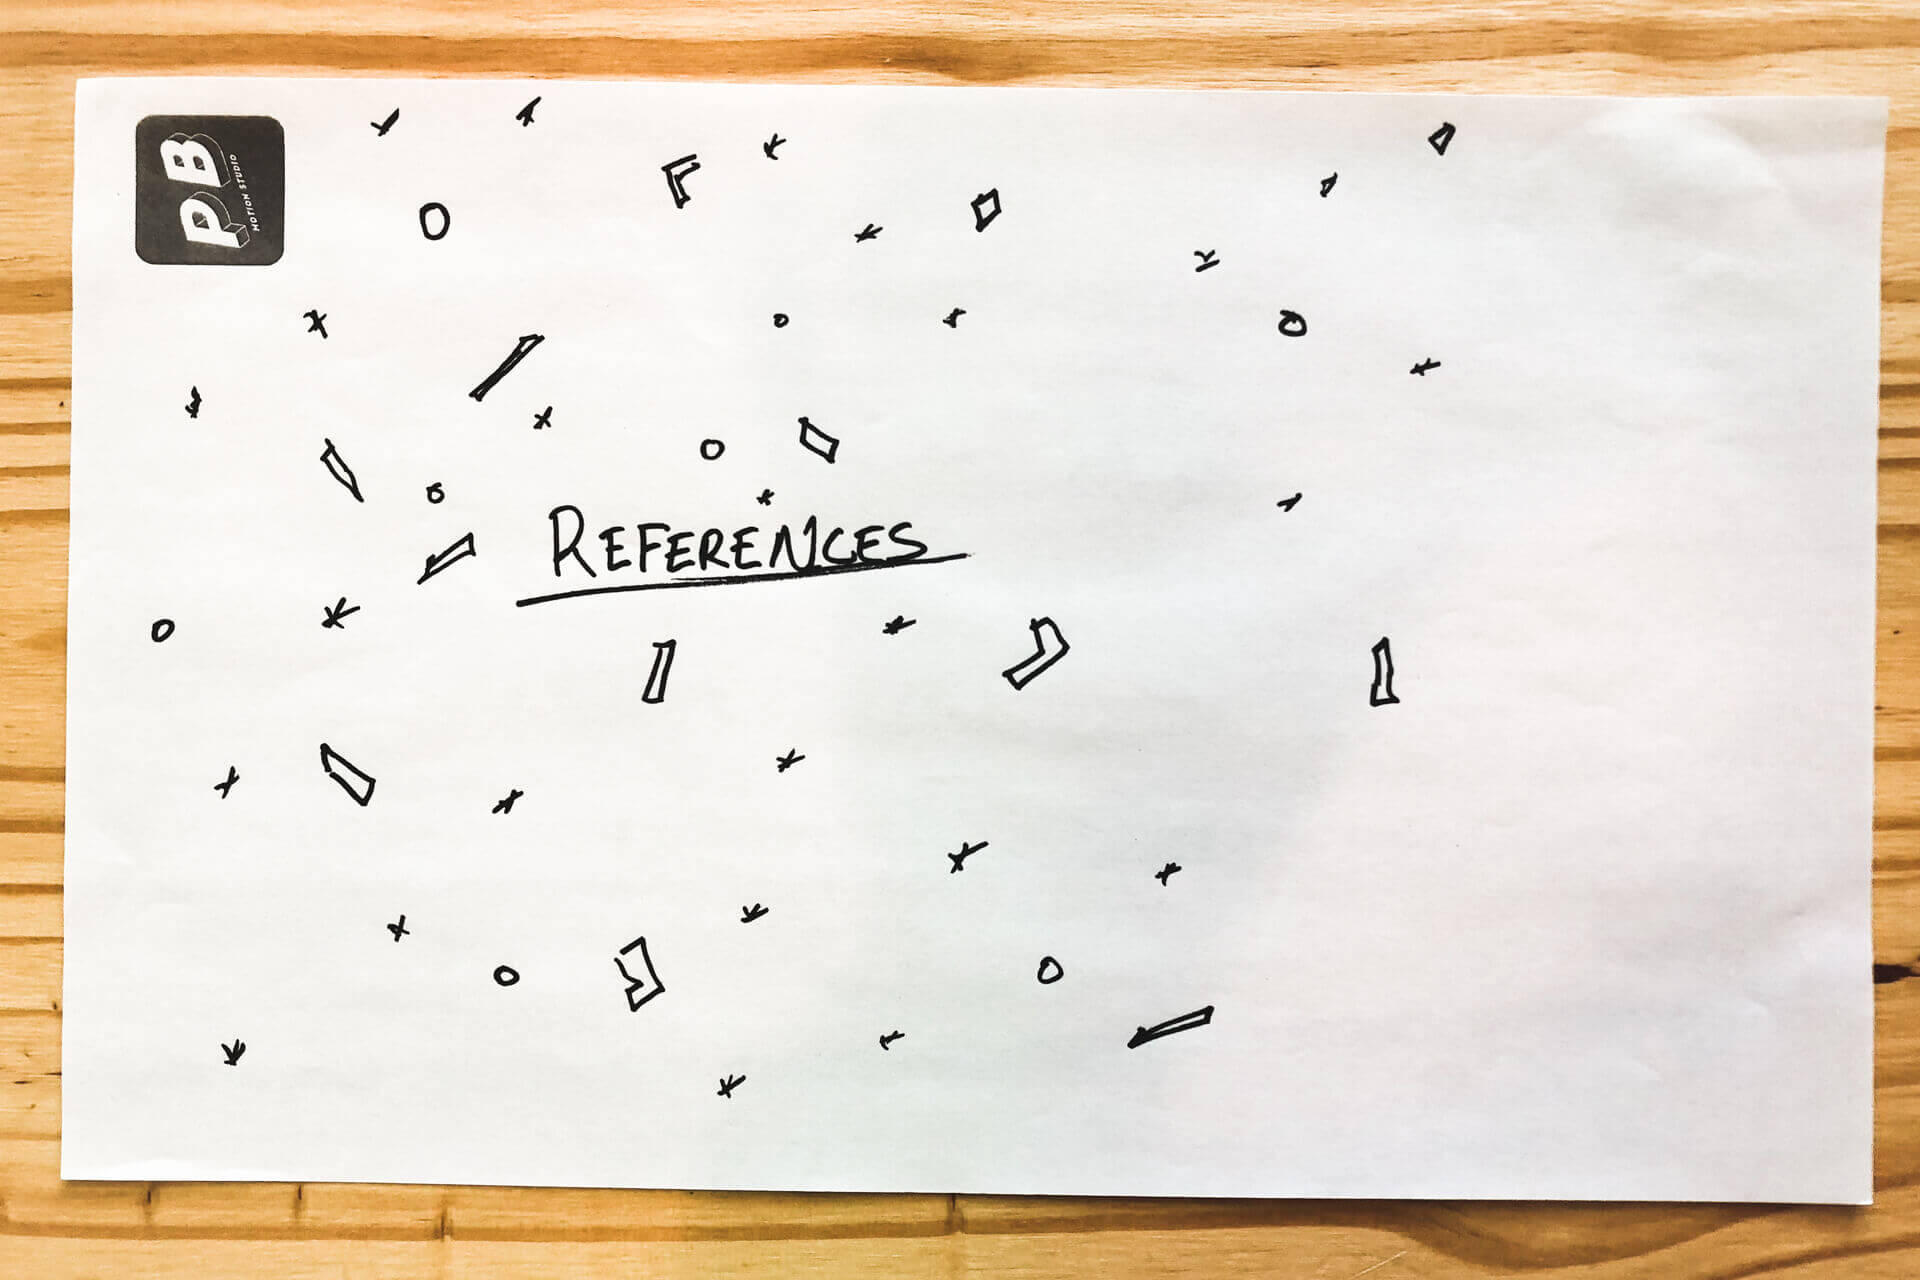 PB
MOTION STUDIO
REFERENCES